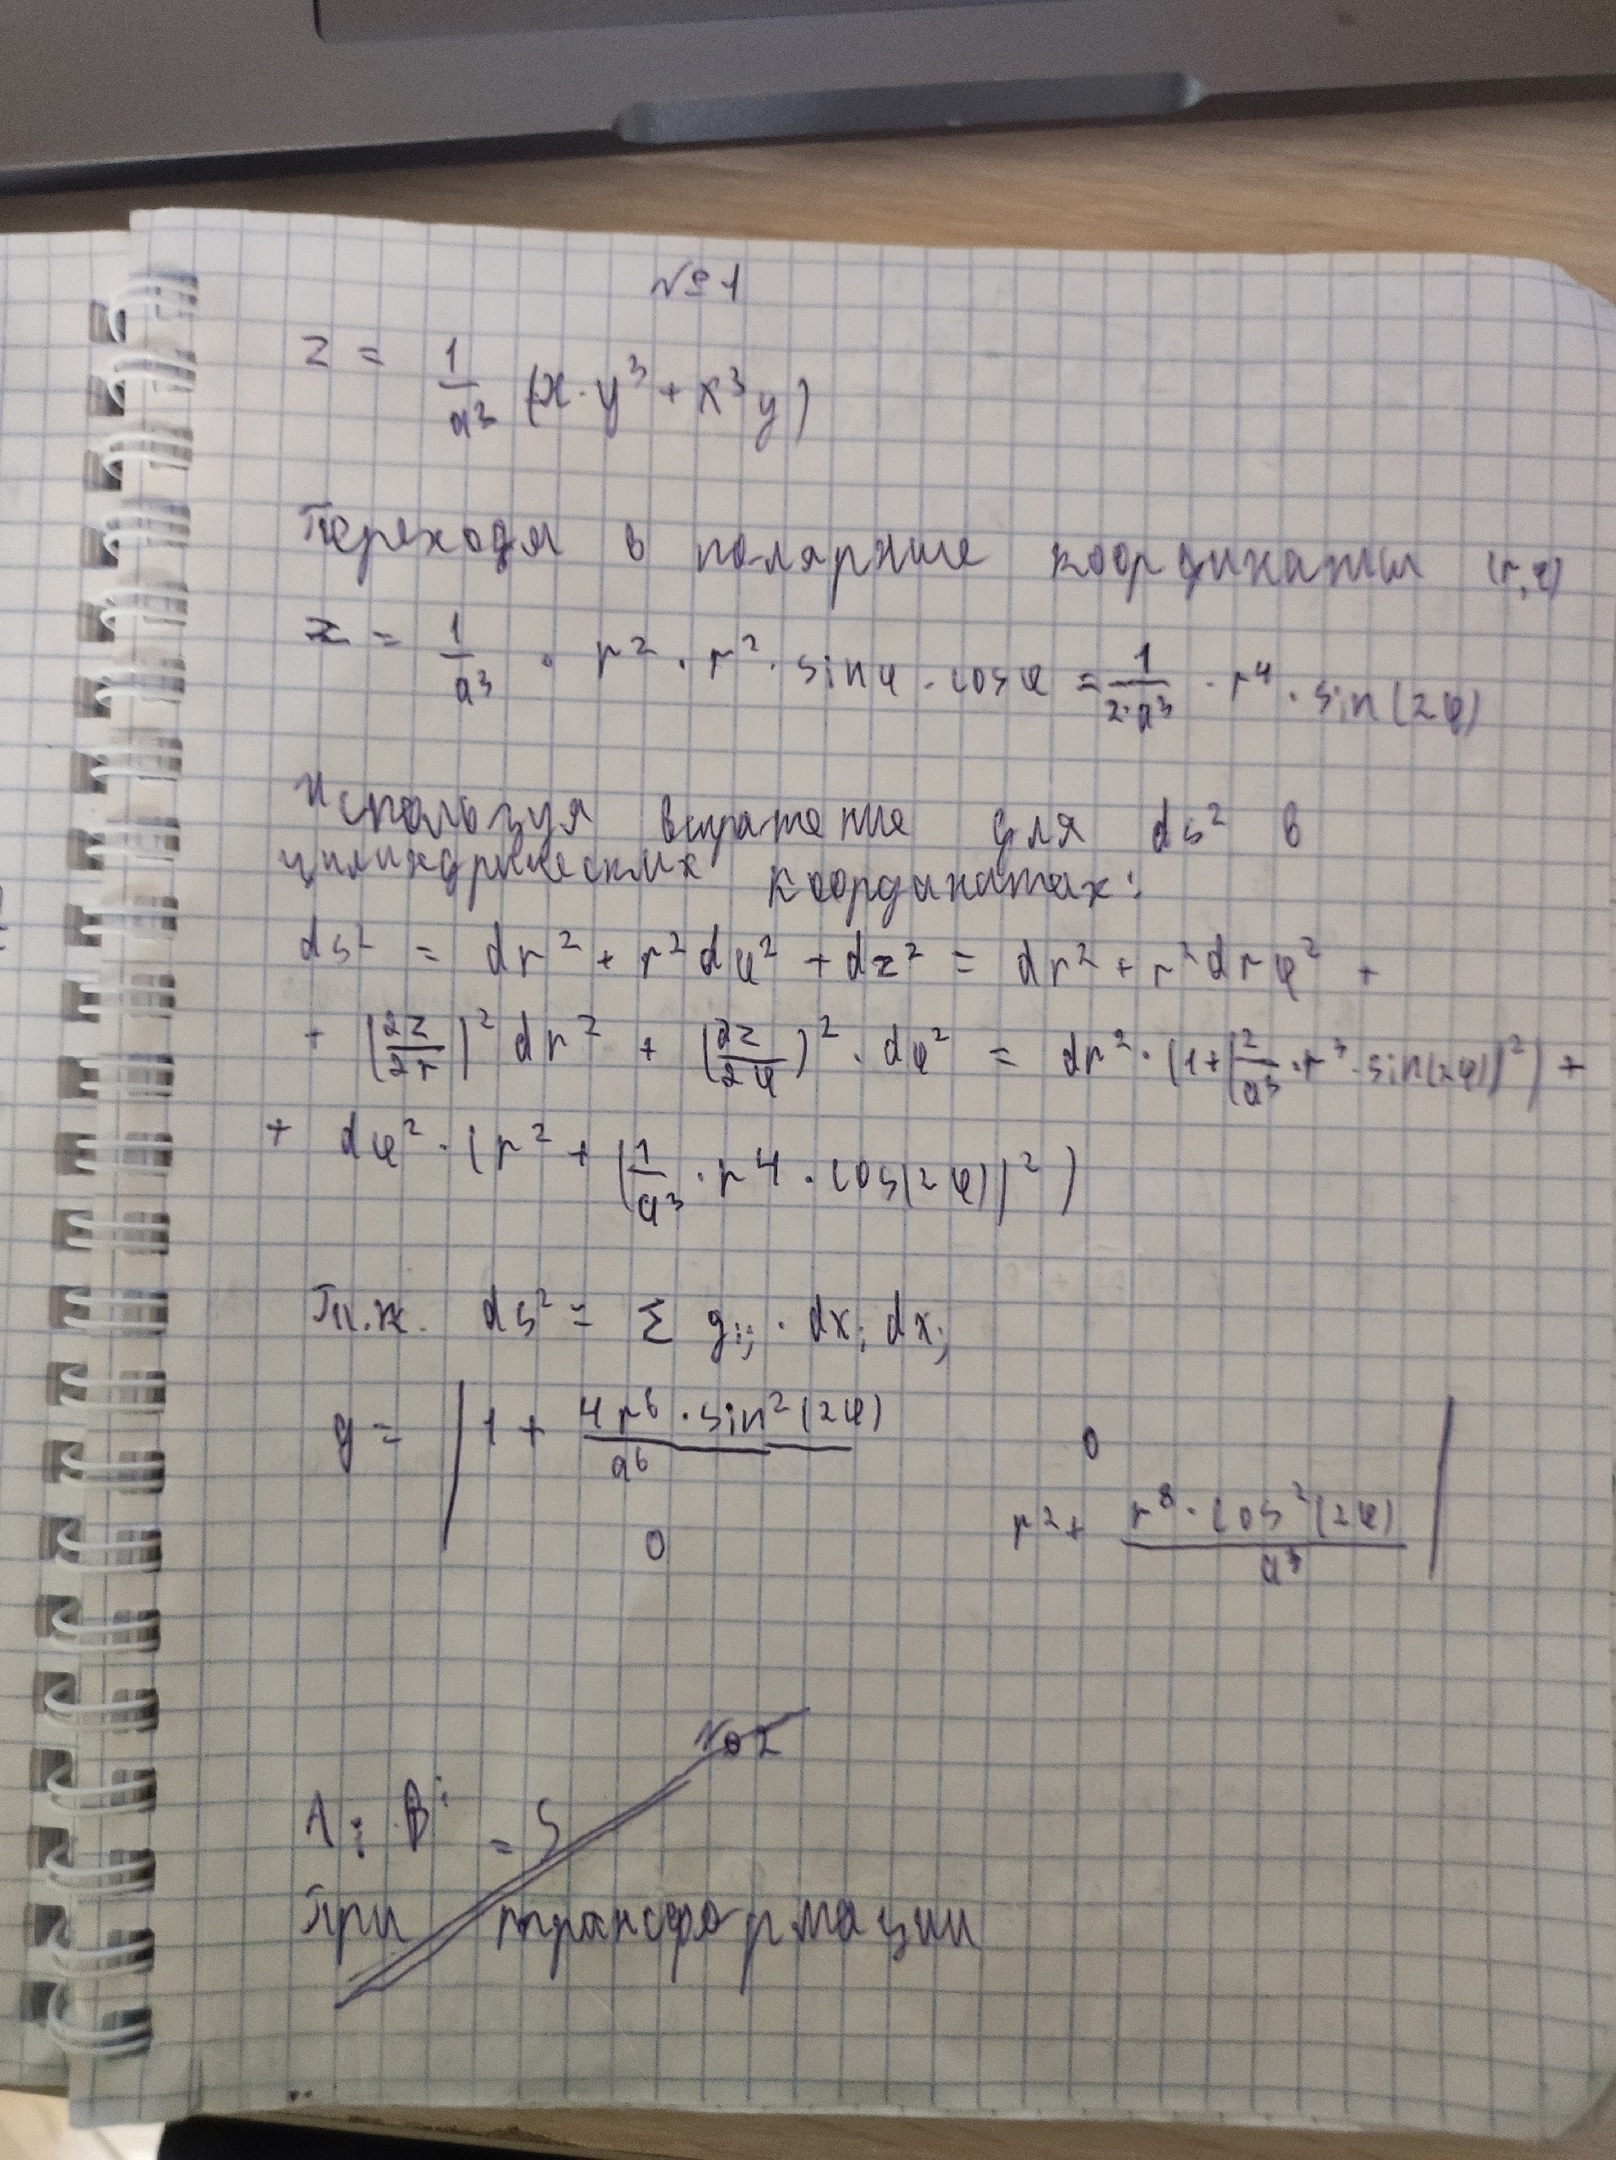 №1
z = 1/a³ (x·y³ + x³y)
Переходя в полярные координаты (r,φ)
z = 1/a³ · r² · r² · sinφ · cosφ = 1/(2·a³) · r⁴ · sin(2φ)
Используя выражение для ds² в
цилиндрических координатах:
ds² = dr² + r²dφ² + dz² = dr² + r²drφ² +
+ (∂z/∂r)² dr² + (∂z/∂φ)² · dφ² = dr² · (1 + (2/a³ · r³ · sin(2φ))²) +
+ dφ² · (r² + (1/a³ · r⁴ · cos(2φ))²)
Т.к. ds² = Σ gᵢⱼ · dxᵢ dxⱼ
g = | 1 + 4r⁶ · sin²(2φ)/a⁶ 0
0 r² + r⁸ · cos²(2φ)/a³ |
№2
Aᵢ Bⁱ = S
При трансформации